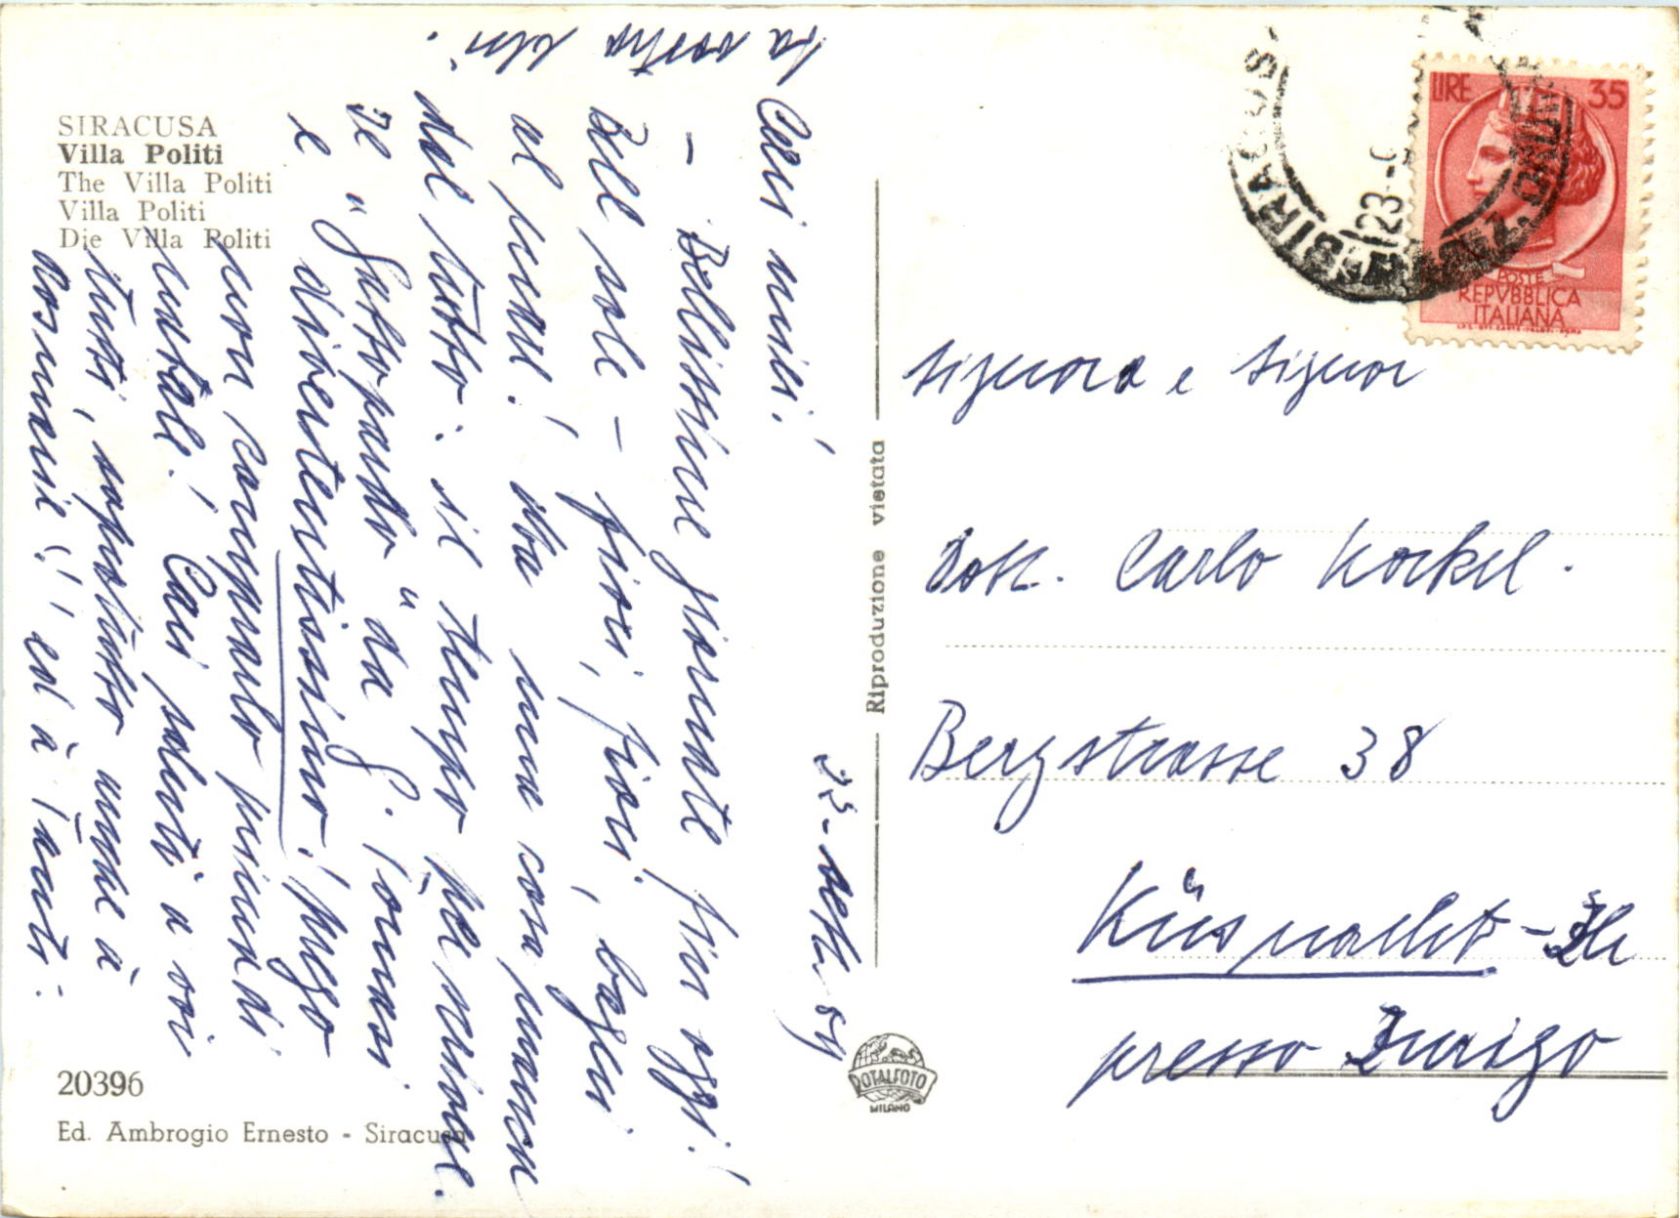 SIRACUSA
Villa Politi
The Villa Politi
Villa Politi
Die Villa Politi
23. sett. 59
Cari amici!
- Bellissime giornate fin oggi!
Bel sole - fiori, fiori, bagni
al mare! Ma una cosa manca
del tutto: il tempo per scrivere.
Il "Gattopardo" da G. Tomasi
è divertentissimo! Prego
non comprarlo prima di
Natale! Cari saluti a voi
tutti, soprattutto anche a
Rosmarie!! ed a
la vostra
20396
Ed. Ambrogio Ernesto - Siracusa
Riproduzione vietata
ROTALFOTO
MILANO
SIRACUSA
23-9
LIRE 35
POSTE
REPVBBLICA
ITALIANA
Signora e Signor
Dott. Carlo Kockel.
Bergstrasse 38
Küsnacht-Zh
presso Zurigo